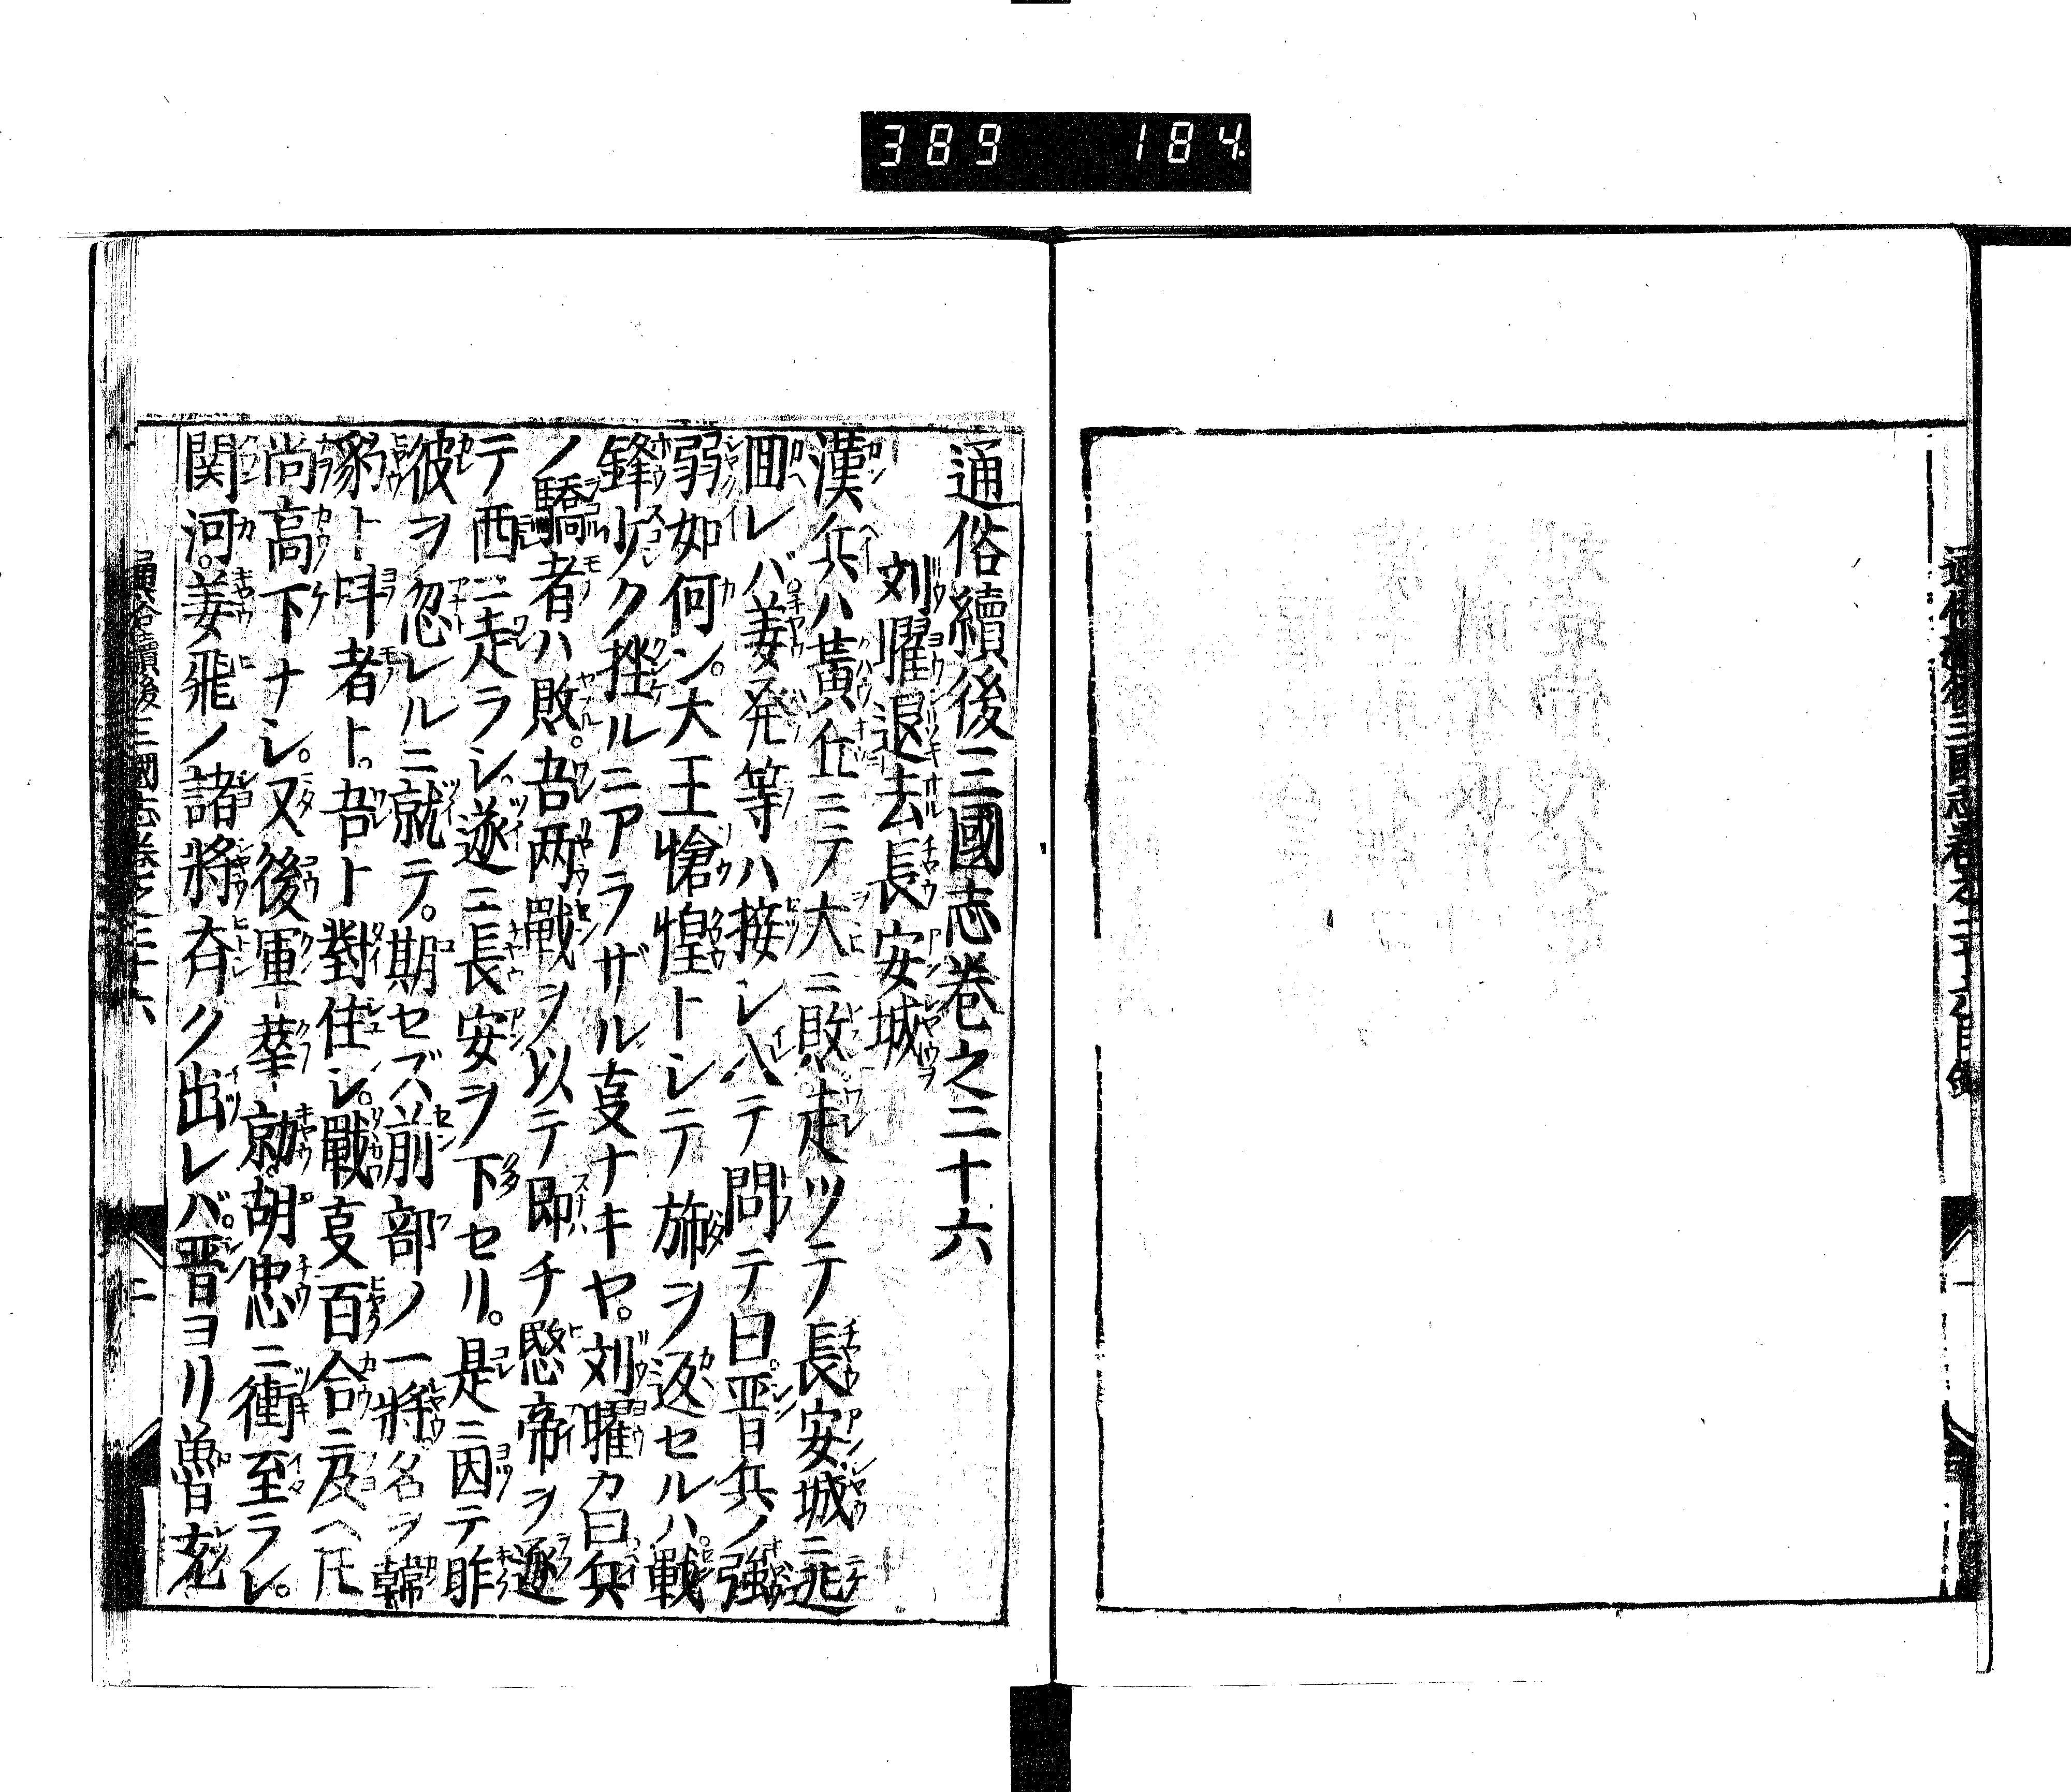 389 184
通俗續後三國志卷之二十六
劉曜退去長安城
漢兵ハ黃丘ニテ大ニ敗走ツテ長安城ニ逃
回レバ。姜発等ハ接レ入テ問テ曰。晋兵ノ強
弱如何ン。大王愴惶トシテ旆ヲ返セルハ。戰
鋒少ク挫ルニアラザル叓ナキヤ。刘曜カ曰兵
ノ驕者ハ敗。吾两戰ヲ以テ即チ愍帝ヲ逐
テ西ニ走ラシ。遂ニ長安ヲ下セリ。是ニ因テ昨
彼ヲ忽レルニ就テ。期セズ前部ノ一將名ヲ韓
豹ト呌者ト。吾ト對住シ。戰叓百合ニ及ヘ𪜈
尚高下ナシ。又後軍辜勍。胡忠ニ衝至ラレ。
関河。姜飛ノ諸將斉ク出レバ。晋ヨリ魯充
通俗續後三國志卷之二十六
二